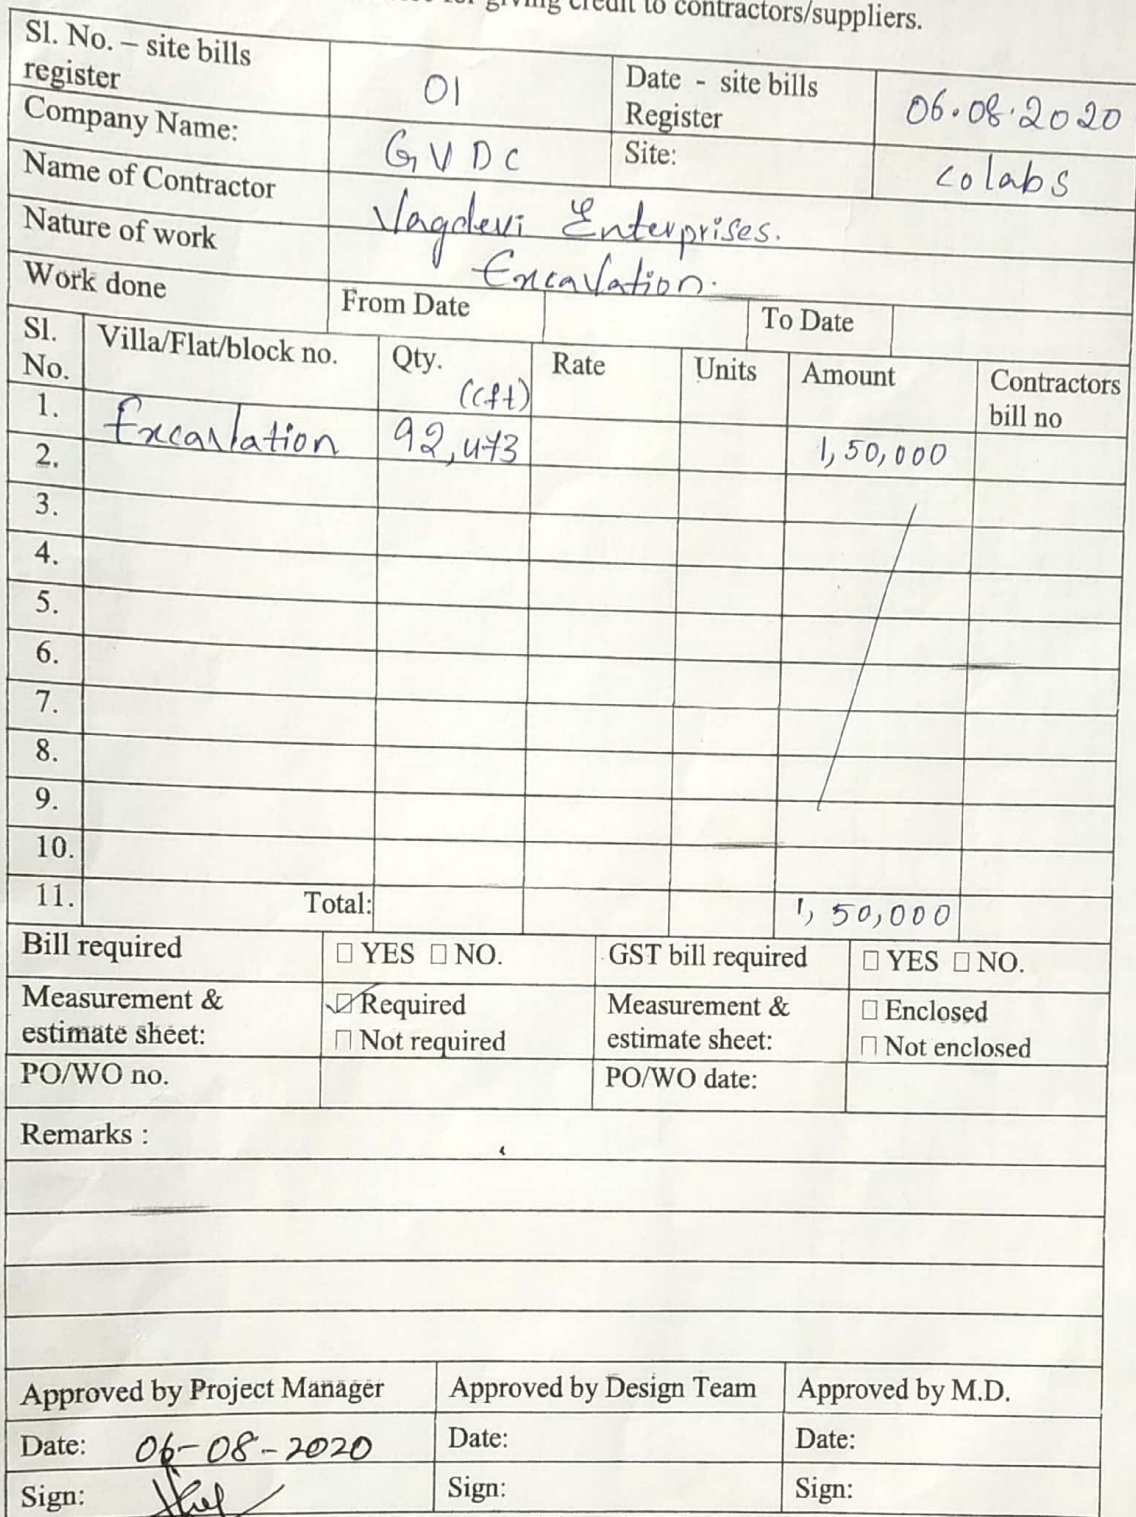 for giving credit to contractors/suppliers.
Sl. No. – site bills register 01 Date - site bills Register 06.08.2020
Company Name: GVDC Site: colabs
Name of Contractor Vagdevi Enterprises.
Nature of work Excavation.
Work done From Date To Date
Sl. No. Villa/Flat/block no. Qty. (cft) Rate Units Amount Contractors bill no
1. Excavation 92,473 1,50,000
2.
3.
4.
5.
6.
7.
8.
9.
10.
11. Total: 1,50,000
Bill required □ YES □ NO. GST bill required □ YES □ NO.
Measurement & estimate sheet: ☑ Required □ Not required Measurement & estimate sheet: □ Enclosed □ Not enclosed
PO/WO no. PO/WO date:
Remarks :
Approved by Project Manager Approved by Design Team Approved by M.D.
Date: 06-08-2020 Date: Date:
Sign: Sign: Sign: